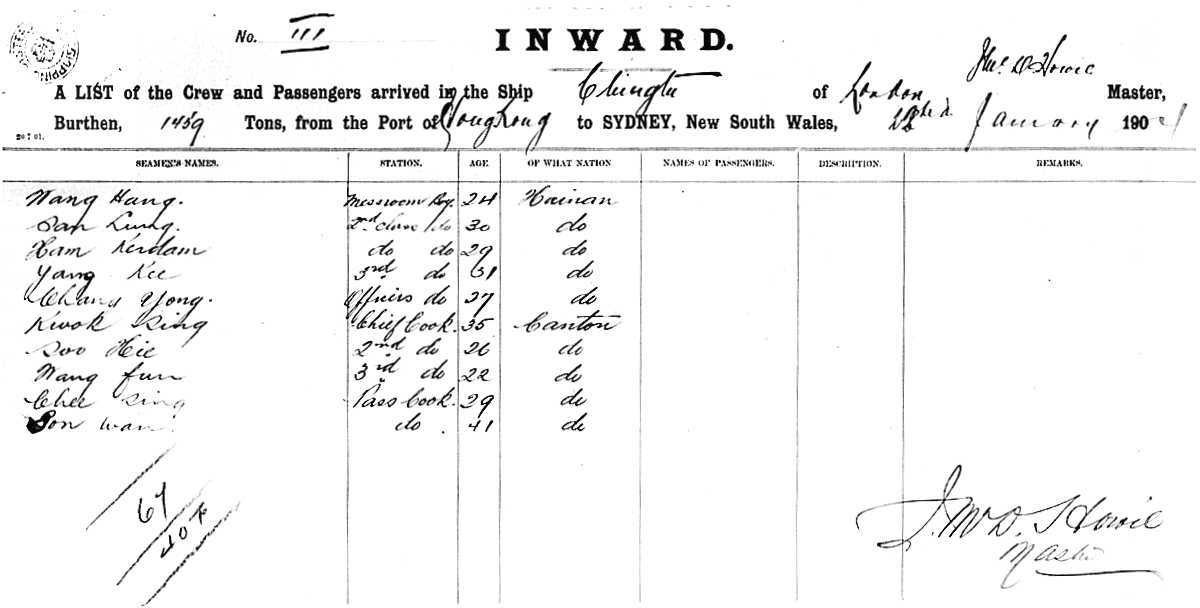 No. III
INWARD.
Jno. D. Howie
A LIST of the Crew and Passengers arrived in the Ship Chingtu of London Master,
Burthen, 1459 Tons, from the Port of Hong Kong to SYDNEY, New South Wales, January 190
20 7 01.
SEAMEN'S NAMES. STATION. AGE. OF WHAT NATION NAMES OF PASSENGERS. DESCRIPTION. REMARKS.
Wang Hang. Messroom Boy. 24 Hainan
San Lung. 2nd class do 30 do
Ham Kerdam do do 29 do
Yang Kee 3rd do 31 do
Chang Yong. Officers do 27 do
Kwok Sing Chief Cook. 35 Canton
Soo Hee 2nd do 26 do
Wang fun 3rd do 22 do
Chee Sing Pass Cook. 29 do
Son Wan. do. 41 do
67
40
J. McD. Howie
Master